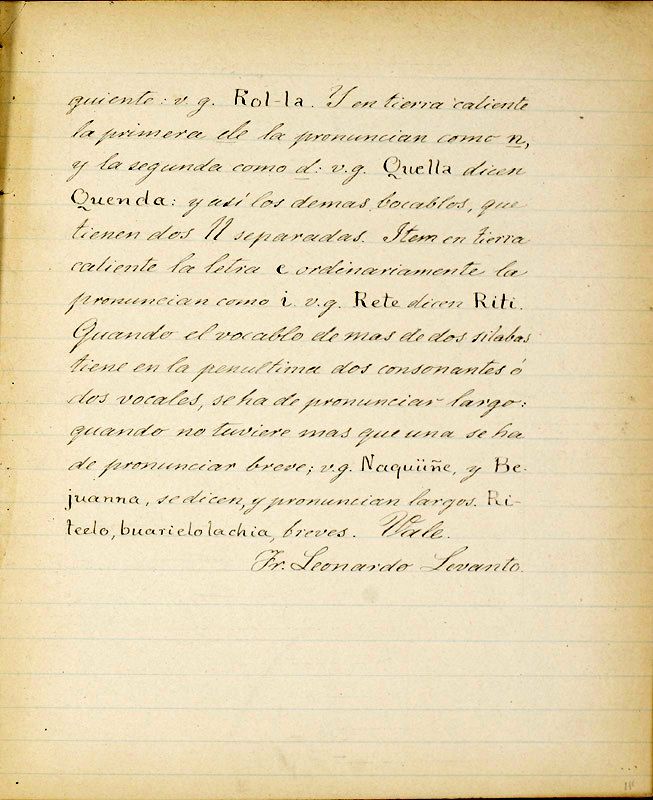 guiente: v. g. Rol-la. Y en tierra caliente
la primera ele la pronuncian como n,
y la segunda como d: v.g. Quella dicen
Quenda: y así los demas bocablos, que
tienen dos ll separadas. Item en tierra
caliente la letra e ordinariamente la
pronuncian como i. v.g. Rete dicen Riti.
Quando el vocablo de mas de dos silabas
tiene en la penultima dos consonantes ó
dos vocales, se ha de pronunciar largo:
quando no tuviere mas que una se ha
de pronunciar breve; v.g. Naquiiñe, y Be-
juanna, se dicen, y pronuncian largos. Ri-
teelo, buarielolachia, breves. Vale.
Fr. Leonardo Levanto.